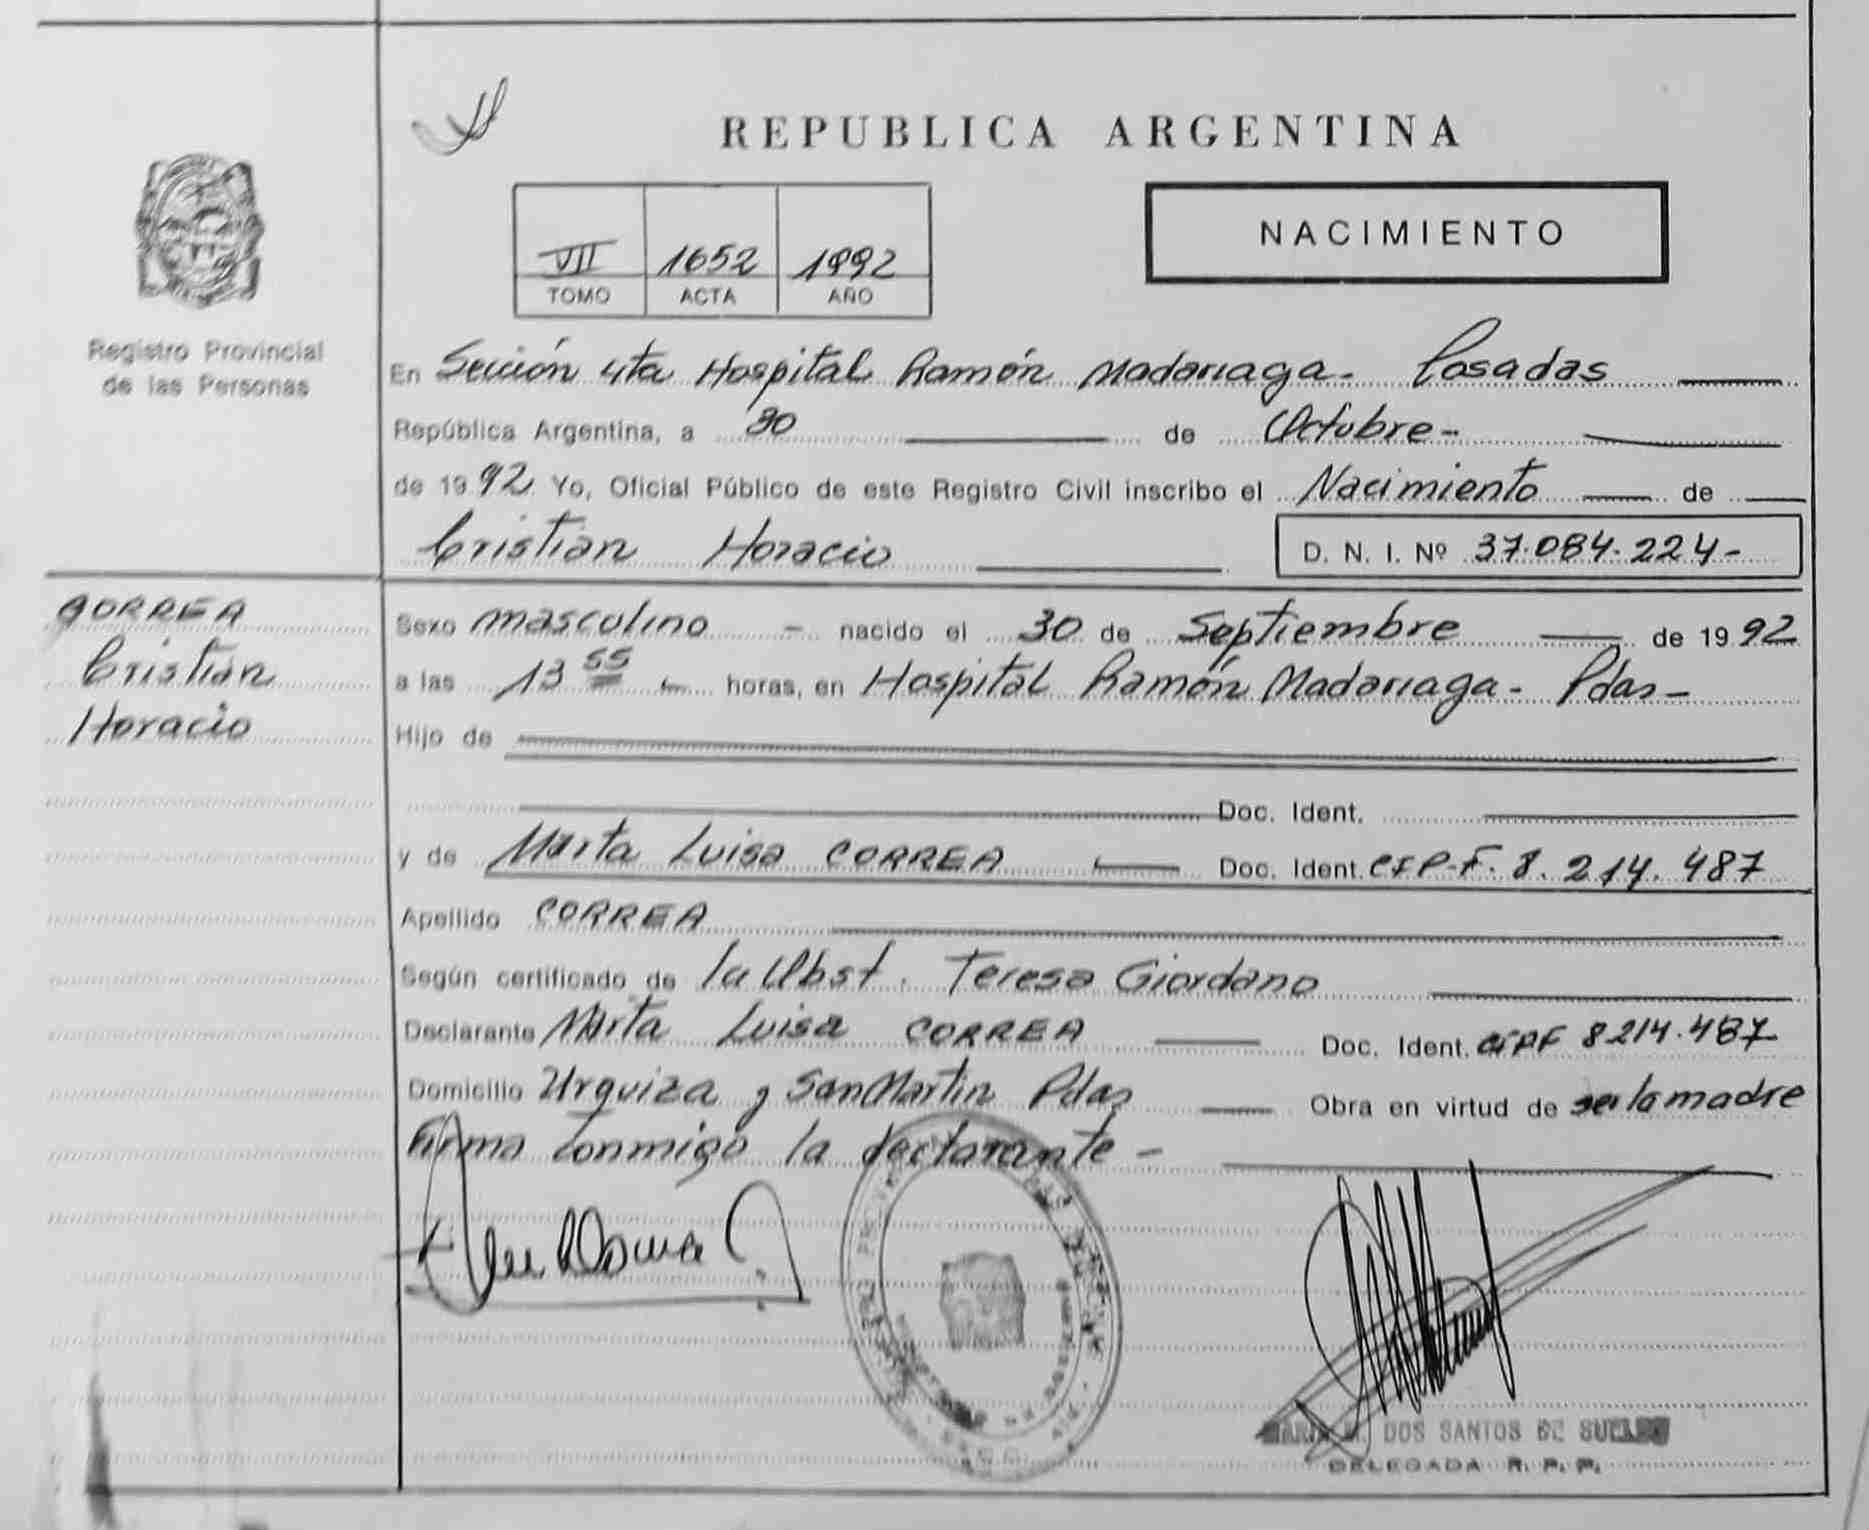 REPUBLICA ARGENTINA
NACIMIENTO
VII 1652 1992
TOMO ACTA AÑO
Registro Provincial
de las Personas
En Sección 4ta Hospital Ramón Madariaga - Posadas
República Argentina, a 30 de Octubre -
de 1992 Yo, Oficial Público de este Registro Civil inscribo el Nacimiento de
Cristian Horacio D. N. I. Nº 37.084.224-
CORREA
Cristian
Horacio
Sexo masculino - nacido el 30 de Septiembre de 1992
a las 13 55 horas, en Hospital Ramón Madariaga - Pdas -
Hijo de
Doc. Ident.
y de Marta Luisa CORREA Doc. Ident. CIP-F. 8.214.487
Apellido CORREA
Según certificado de la Obst. Teresa Giordano
Declarante Marta Luisa CORREA Doc. Ident. CIPF 8214.487
Domicilio Urquiza y San Martin Pdas Obra en virtud de ser la madre
Firma conmigo la declarante -
DOS SANTOS DE
DELEGADA R. P. P.